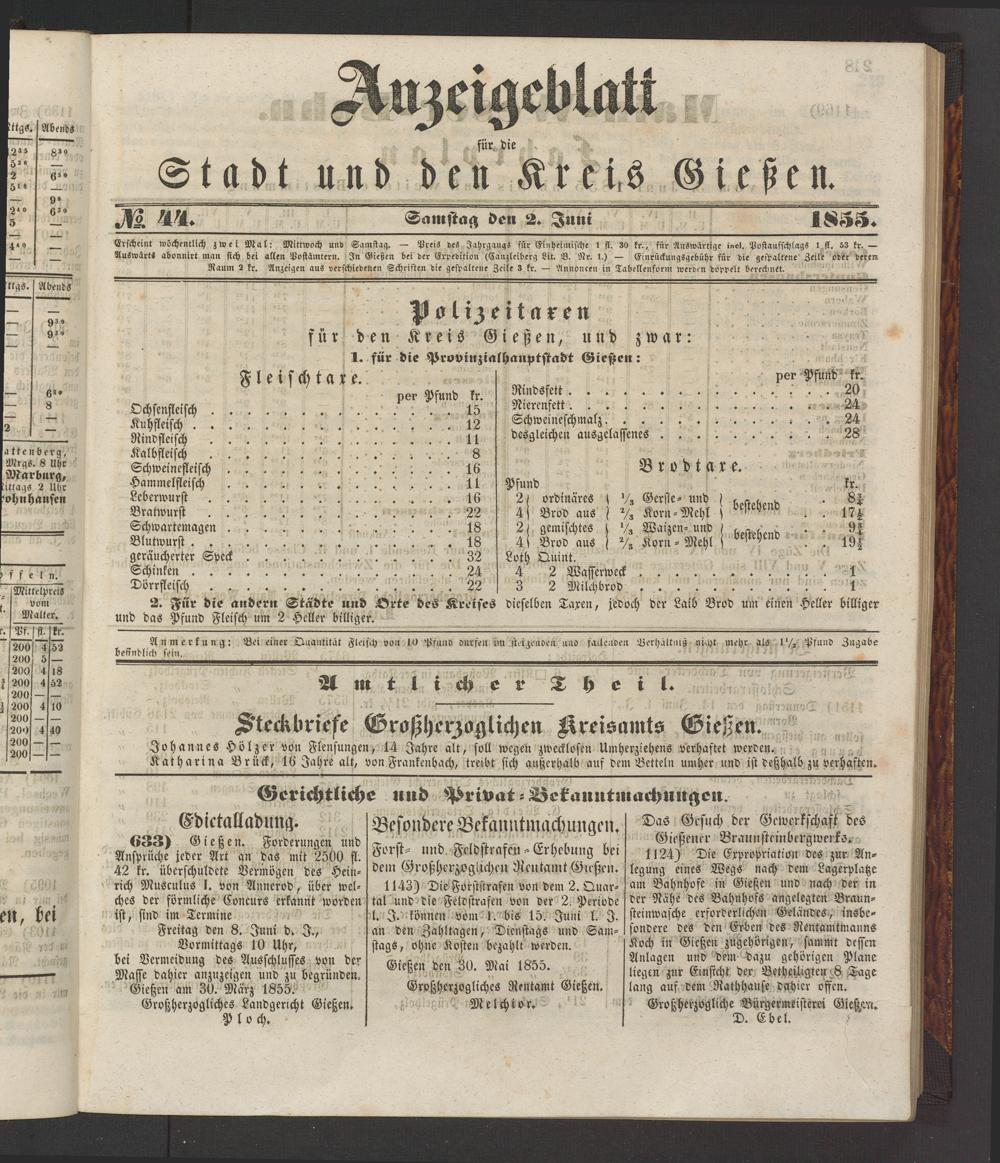 Anzeigeblatt
für die
Stadt und den Kreis Gießen.
№ 44. Samstag den 2. Juni 1855.
Erscheint wöchentlich zwei Mal: Mittwoch und Samstag. — Preis des Jahrgangs für Einheimische 1 fl. 30 kr., für Auswärtige incl. Postaufschlags 1 fl. 53 kr. —
Auswärts abonnirt man sich bei allen Postämtern. In Gießen bei der Expedition (Canzleiberg Lit. B. Nr. 1.) — Einrückungsgebühr für die gespaltene Zeile oder deren
Raum 2 kr. Anzeigen aus verschiedenen Schriften die gespaltene Zeile 3 kr. — Annoncen in Tabellenform werden doppelt berechnet.
Polizeitaxen
für den Kreis Gießen, und zwar:
1. für die Provinzialhauptstadt Gießen:
Fleischtaxe.
per Pfund kr.
Ochsenfleisch . . . 15
Kuhfleisch . . . 12
Rindfleisch . . . 11
Kalbfleisch . . . 8
Schweinefleisch . . . 16
Hammelfleisch . . . 11
Leberwurst . . . 16
Bratwurst . . . 22
Schwartemagen . . . 18
Blutwurst . . . 18
geräucherter Speck . . . 32
Schinken . . . 24
Dörrfleisch . . . 22
per Pfund kr.
Rindsfett . . . 20
Nierenfett . . . 24
Schweineschmalz . . . 24
desgleichen ausgelassenes . . . 28
Brodtaxe.
Pfund kr.
2 ordinäres 1/3 Gerste- und bestehend . 8
4 Brod aus 2/3 Korn-Mehl . 17
2 gemischtes 1/3 Waizen- und bestehend . 9
4 Brod aus 2/3 Korn-Mehl . 19
Loth Quint.
4 2 Wasserweck . . . 1
3 2 Milchbrod . . . 1
2. Für die andern Städte und Orte des Kreises dieselben Taxen, jedoch der Laib Brod um einen Heller billiger
und das Pfund Fleisch um 2 Heller billiger.
Anmerkung: Bei einer Quantität Fleisch von 10 Pfund dürfen im steigenden und fallenden Verhältniß nicht mehr als 1 1/2 Pfund Zugabe
befindlich sein.
Amtlicher Theil.
Steckbriefe Großherzoglichen Kreisamts Gießen.
Johannes Hölzer von Flensungen, 14 Jahre alt, soll wegen zwecklosen Umherziehens verhaftet werden.
Katharina Brück, 16 Jahre alt, von Frankenbach, treibt sich außerhalb auf dem Betteln umher und ist deßhalb zu verhaften.
Gerichtliche und Privat-Bekanntmachungen.
Edictalladung.
633) Gießen. Forderungen und
Ansprüche jeder Art an das mit 2500 fl.
42 kr. überschuldete Vermögen des Hein-
rich Musculus I. von Annerod, über wel-
ches der förmliche Concurs erkannt worden
ist, sind im Termine
Freitag den 8. Juni d. J.,
Vormittags 10 Uhr,
bei Vermeidung des Ausschlusses von der
Masse dahier anzuzeigen und zu begründen.
Gießen am 30. März 1855.
Großherzogliches Landgericht Gießen.
Ploch.
Besondere Bekanntmachungen.
Forst- und Feldstrafen-Erhebung bei
dem Großherzoglichen Rentamt Gießen.
1143) Die Forststrafen von dem 2. Quar-
tal und die Feldstrafen von der 2. Periode
l. J. können vom 1. bis 15. Juni l. J.
an den Zahltagen, Dienstags und Sam-
stags, ohne Kosten bezahlt werden.
Gießen den 30. Mai 1855.
Großherzogliches Rentamt Gießen.
Melchior.
Das Gesuch der Gewerkschaft des
Gießener Braunsteinbergwerks.
1124) Die Expropriation des zur An-
legung eines Wegs nach dem Lagerplatze
am Bahnhofe in Gießen und nach der in
der Nähe des Bahnhofs angelegten Braun-
steinwasche erforderlichen Geländes, insbe-
sondere des den Erben des Rentamtmanns
Koch in Gießen zugehörigen, sammt dessen
Anlagen und dem dazu gehörigen Plane
liegen zur Einsicht der Betheiligten 8 Tage
lang auf dem Rathhause dahier offen.
Großherzogliche Bürgermeisterei Gießen.
D. Ebel.